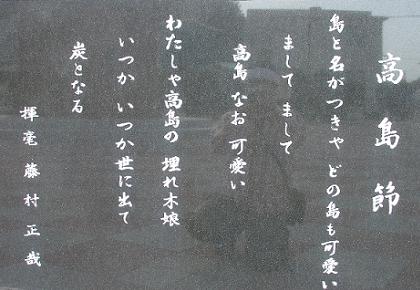 高島節
島と名がつきゃ どの島も可愛い
まして まして
高島 なお 可愛い
わたしゃ高島の 埋れ木娘
いつか いつか世に出て
炭となる
揮毫 藤村正哉